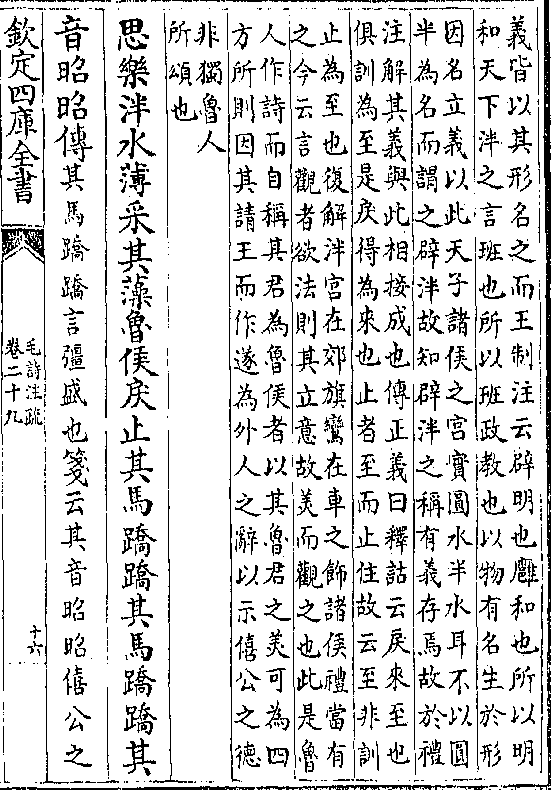 義皆以其形名之而王制注云辟明也廱和也所以明
和天下泮之言班也所以班政教也以物有名生於形
因名立義以此天子諸侯之宫實圓水半水耳不以圓
半為名而謂之辟泮故知辟泮之稱有義存焉故於禮
注解其義與此相接成也傳正義曰釋詁云戾來至也
俱訓為至是戾得為來也止者至而止住故云至非訓
止為至也復解泮宫在郊旗鸞在車之飾諸侯禮當有
之今云言觀者欲法則其立意故美而觀之也此是魯
人作詩而自稱其君為魯侯者以其魯君之美可為四
方所則因其請王而作遂為外人之辭以示僖公之德
非獨魯人
所頌也
思樂泮水薄采其藻魯侯戾止其馬蹻蹻其馬蹻蹻其
音昭昭傳其馬蹻蹻言彊盛也箋云其音昭昭僖公之
欽定四庫全書
毛詩注疏
卷二十九
十六